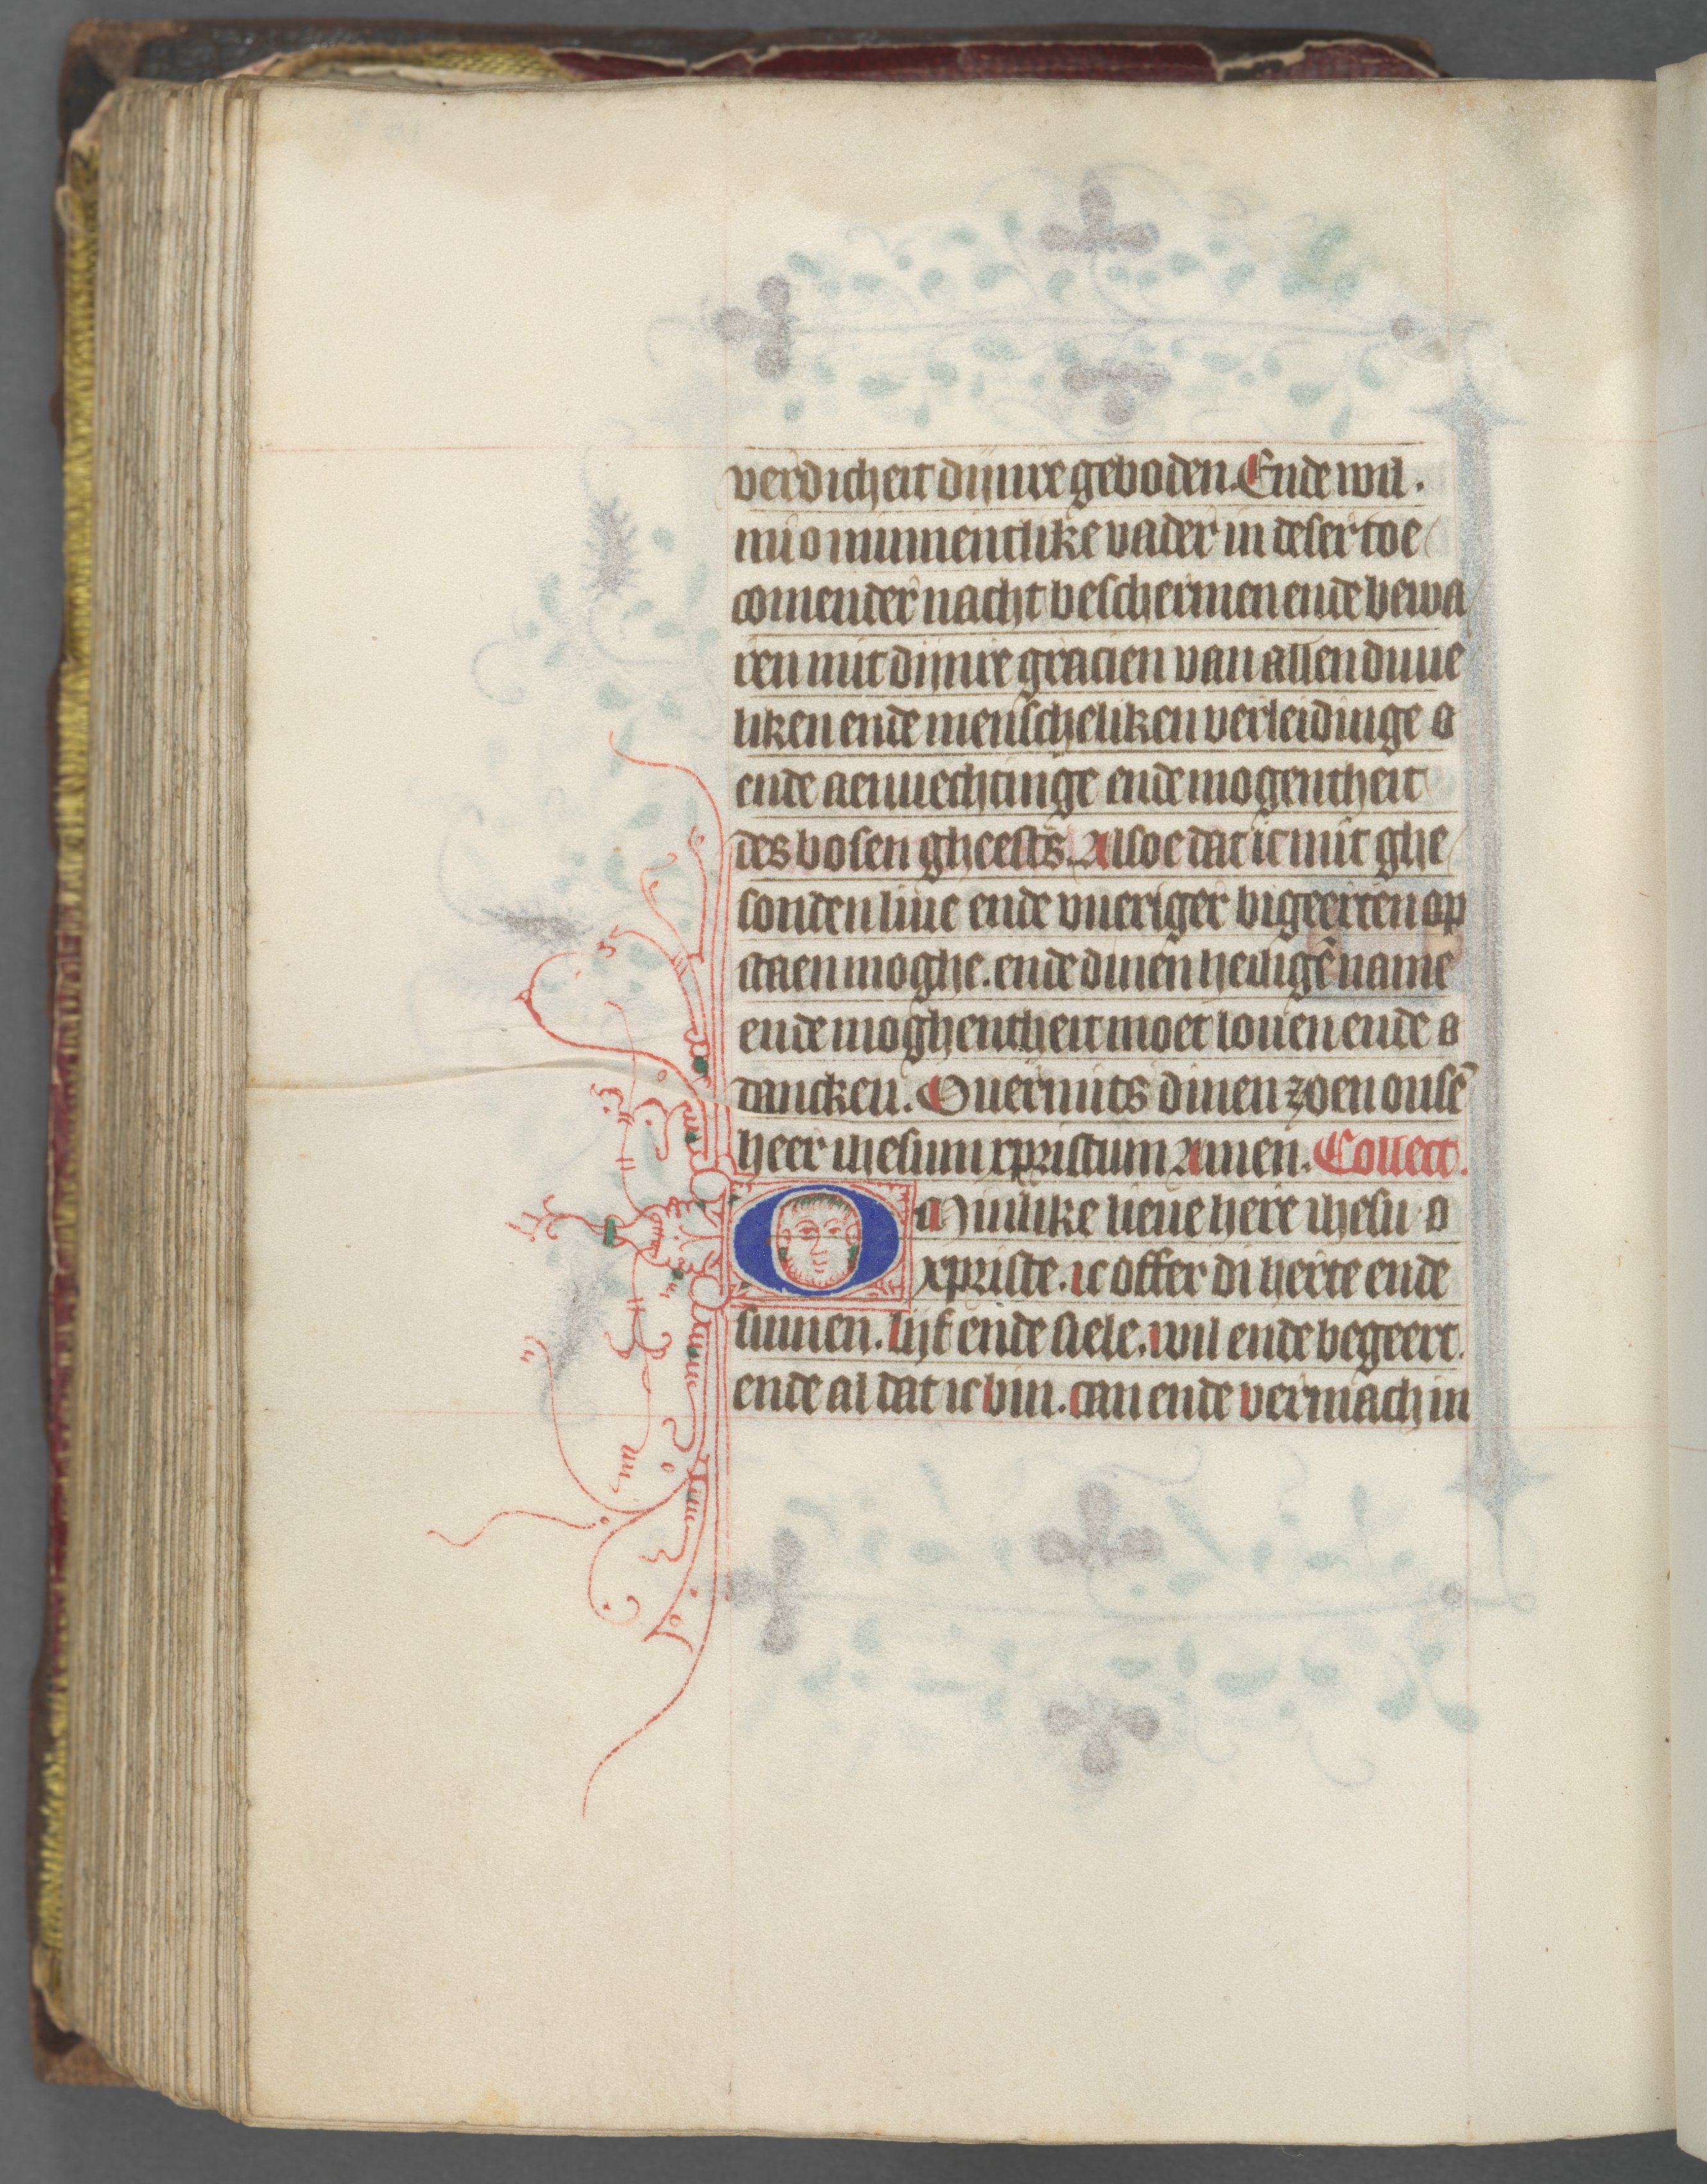 verdicheit dijnre geboden. Ende wil.
mi o minnentlike vader in deser toe
comender nacht beschermen ende bewa
ren mit dijnre gracien van allen duue
liken ende menscheliken verleidinge o
ende aenuechtinge ende mogentheit
des bosen gheests. Alsoe dat ic mit ghe
sonden liue ende vueriger bigeerten op
staen moghe. ende dinen heiligē name
ende moghentheit moet louen ende o
dancken. Ouermits dinen zoen onsē
heer ihesum xpristum Amen. Collect.
O Minlike lieue here ihesu o
xpriste. ic offer di herte ende
sinnen. lijf ende siele. wil ende begeert.
ende al dat ic bin. can ende vermach in